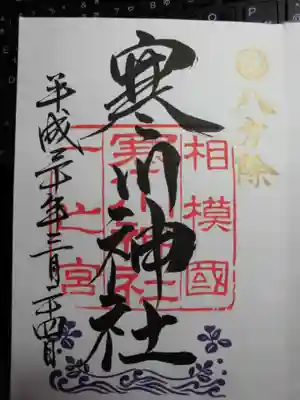 八方除
相模國
寒川神社
一之宮
寒川神社
平成三十年三月二十四日